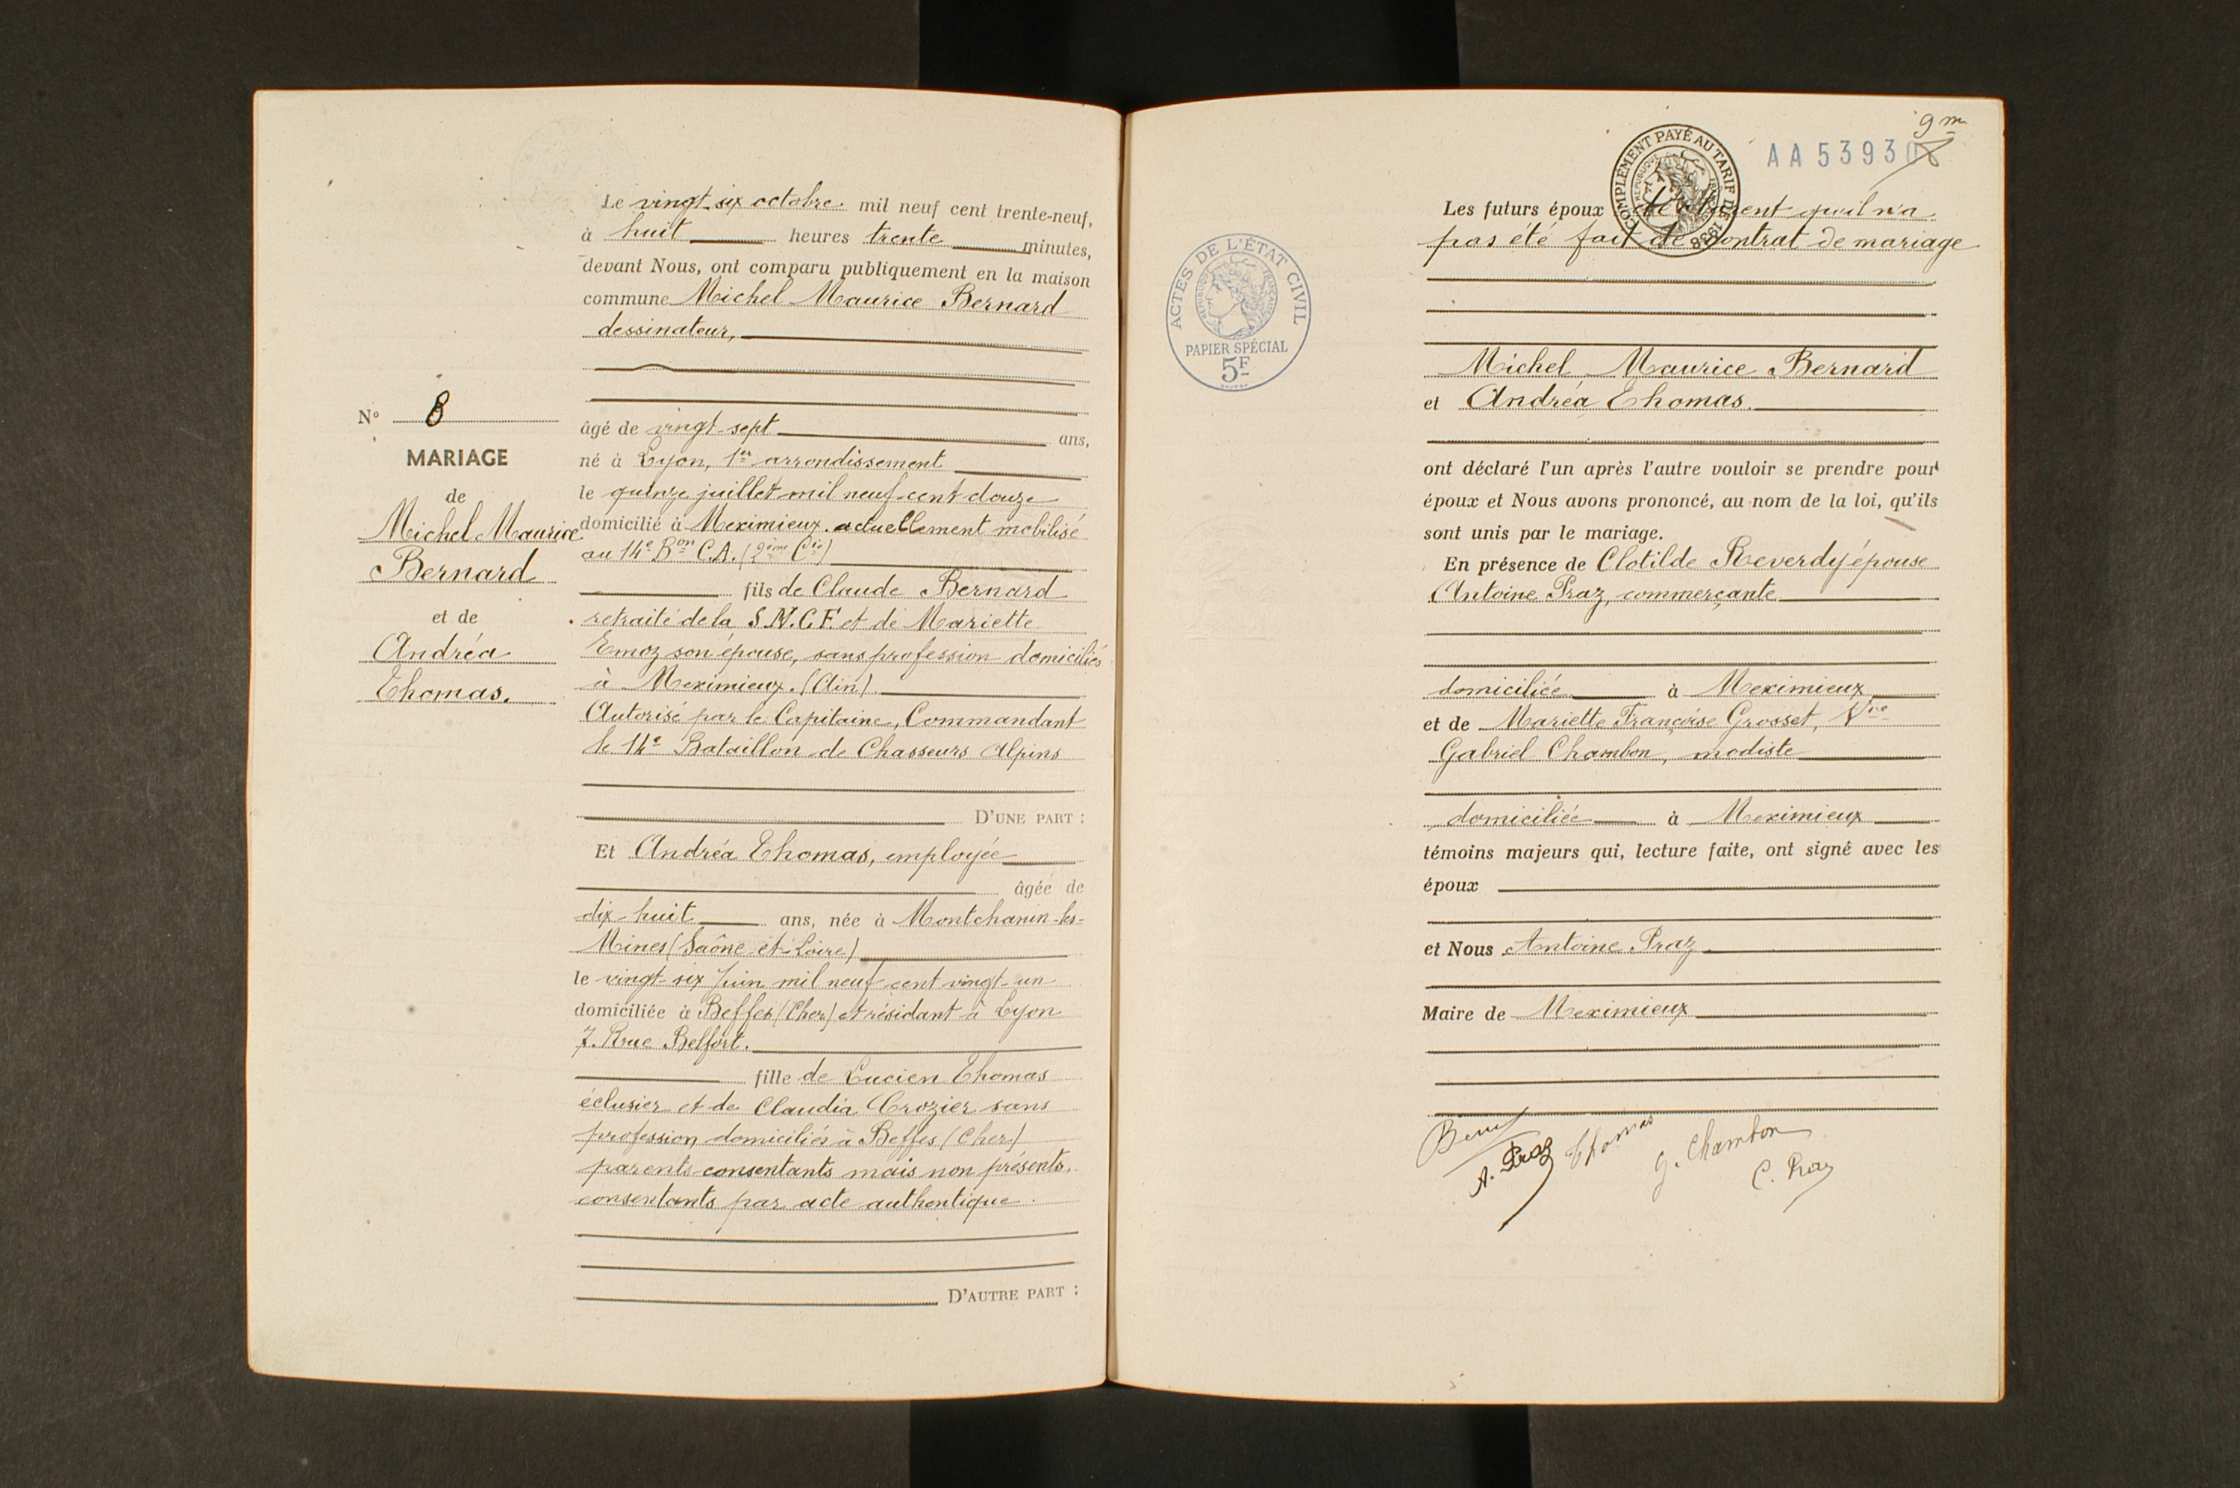 N° 8
MARIAGE
de
Michel Maurice
Bernard
et de
Andréa
Thomas.
Le vingt-six octobre mil neuf cent trente-neuf,
à huit heures trente minutes,
devant Nous, ont comparu publiquement en la maison
commune Michel Maurice Bernard
dessinateur,
âgé de vingt-sept ans,
né à Lyon, 1er arrondissement
le quinze juillet mil neuf cent douze
domicilié à Meximieux. actuellement mobilisé
au 14e Bon C.A. (2ème Cie)
fils de Claude Bernard
retraité de la S.N.C.F. et de Mariette
Emoz son épouse, sans profession domiciliés
à Meximieux. (Ain)
Autorisé par le Capitaine, Commandant
le 14e Bataillon de Chasseurs Alpins
D'UNE PART :
Et Andréa Thomas, employée
âgée de
dix-huit ans, née à Montchanin-les-
Mines (Saône-et-Loire)
le vingt-six Juin mil neuf cent vingt-un
domiciliée à Beffes (Cher) et résidant à Lyon
7. Rue Belfort.
fille de Lucien Thomas
éclusier et de Claudia Crozier sans
profession domiciliés à Beffes (Cher)
parents consentants mais non présents,
consentants par acte authentique
D'AUTRE PART :
ACTES DE L'ÉTAT CIVIL
RÉPUBLIQUE FRANÇAISE
PAPIER SPÉCIAL
5F
9 m
AA 5393
COMPLÉMENT PAYÉ AU TARIF DE 1938
Les futurs époux déclarent qu'il n'a
pas été fait de contrat de mariage
Michel Maurice Bernard
et Andréa Thomas.
ont déclaré l'un après l'autre vouloir se prendre pour
époux et Nous avons prononcé, au nom de la loi, qu'ils
sont unis par le mariage.
En présence de Clotilde Reverdy épouse
Antoine Praz, commerçante
domiciliée à Meximieux
et de Mariette Françoise Grosset, Vve
Gabriel Chambon, modiste
domiciliée à Meximieux
témoins majeurs qui, lecture faite, ont signé avec les
époux
et Nous Antoine Praz
Maire de Meximieux
A. Praz
Thomas
G. Chambon
C. Praz